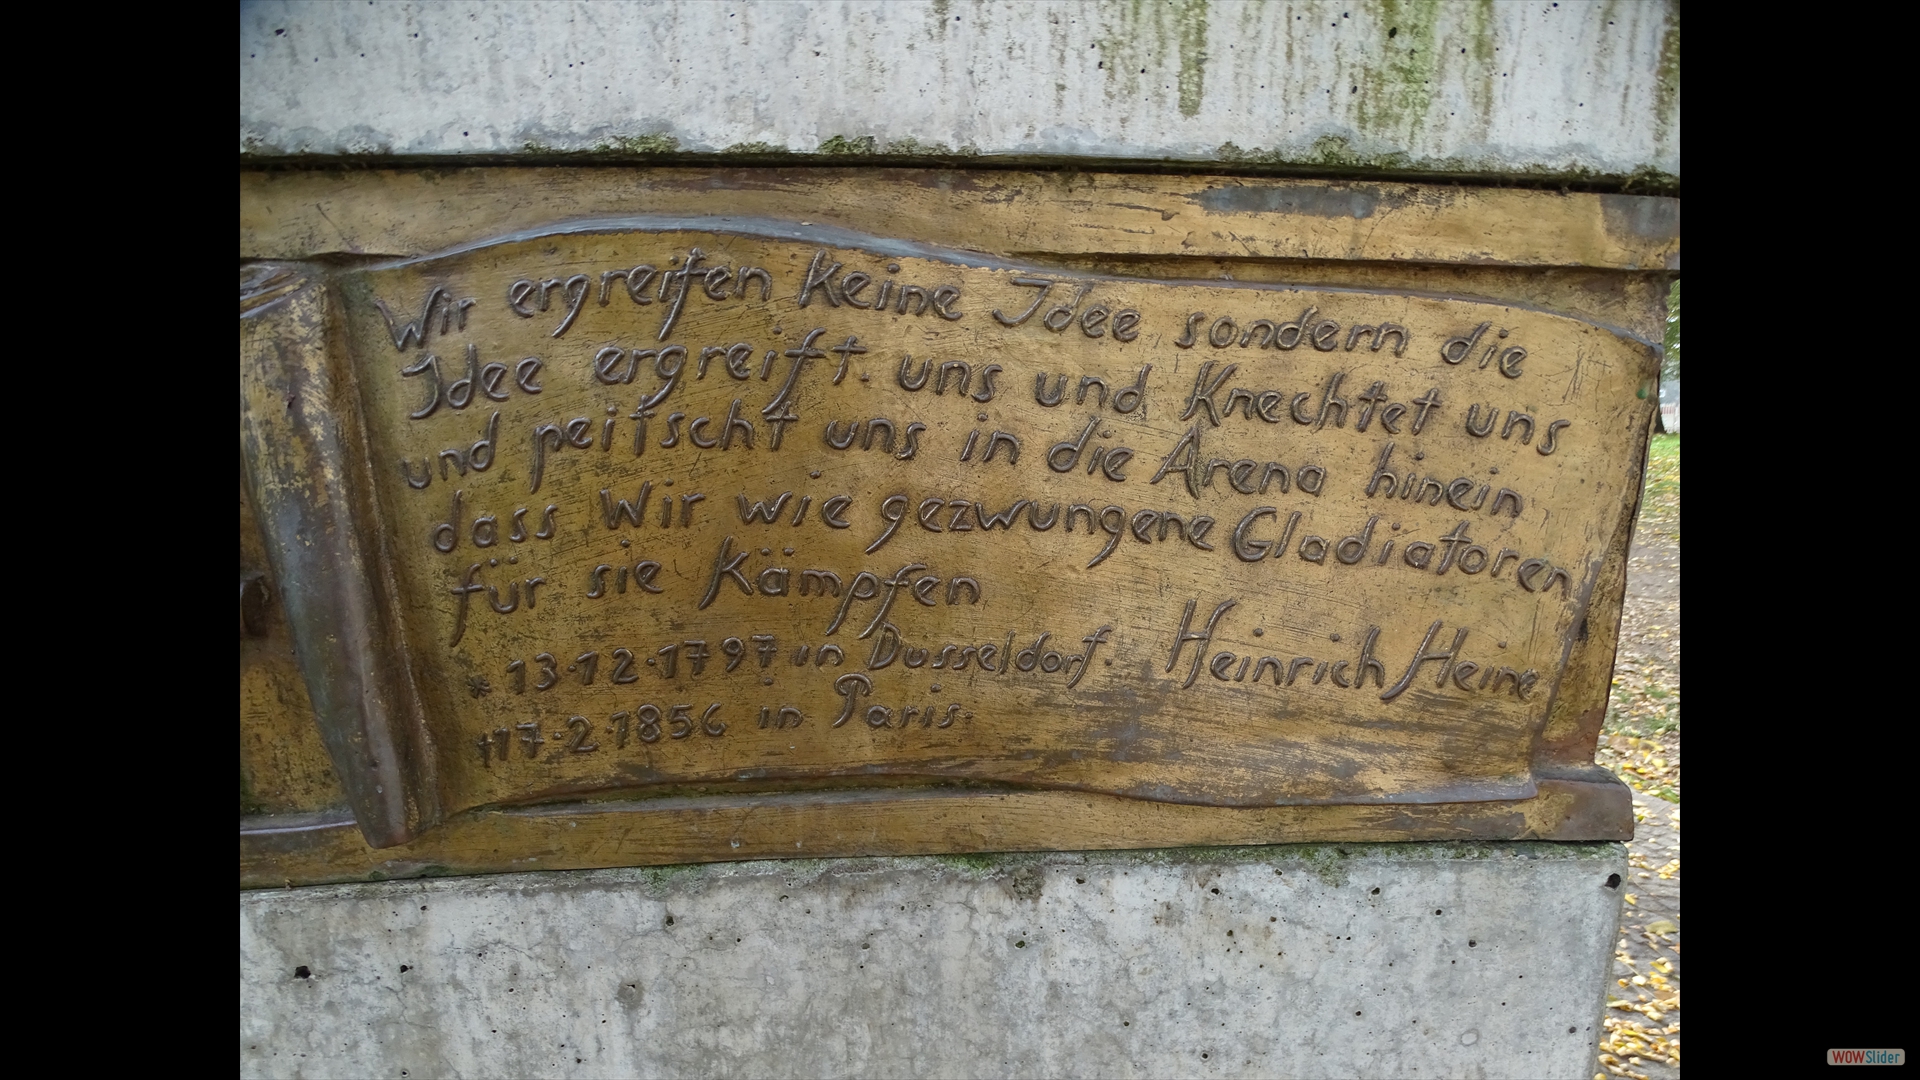 Wir ergreifen Keine Idee sondern die
Idee ergreift. uns und Knechtet uns
und peitscht uns in die Arena hinein
dass Wir wie gezwungene Gladiatoren
für sie Kämpfen
* 13.12.1797 in Dusseldorf. Heinrich Heine
†17.2.1856 in Paris.
WOWSlider